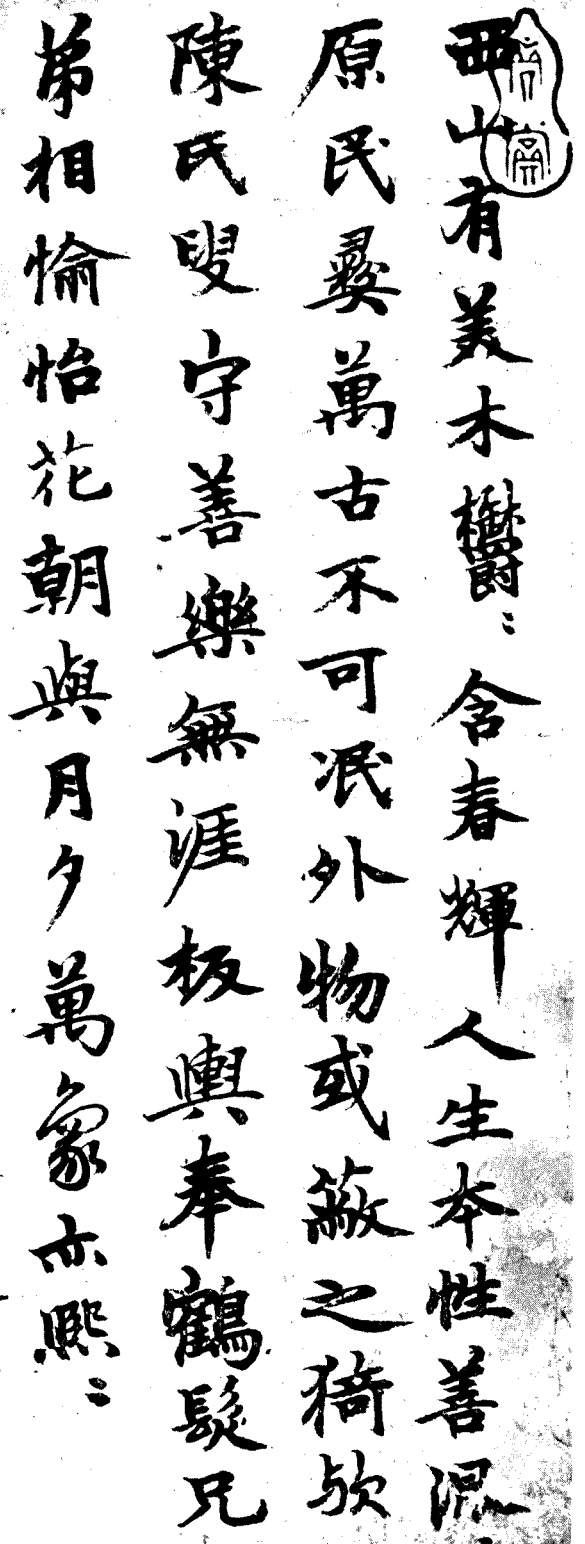 西山有美木鬱〻含春輝人生本性善混〻
原民彞萬古不可泯外物或蔽之猗歟
陳氏叟守善樂無涯板輿奉鶴髮兄
弟相愉怡花朝與月夕萬象亦熙〻